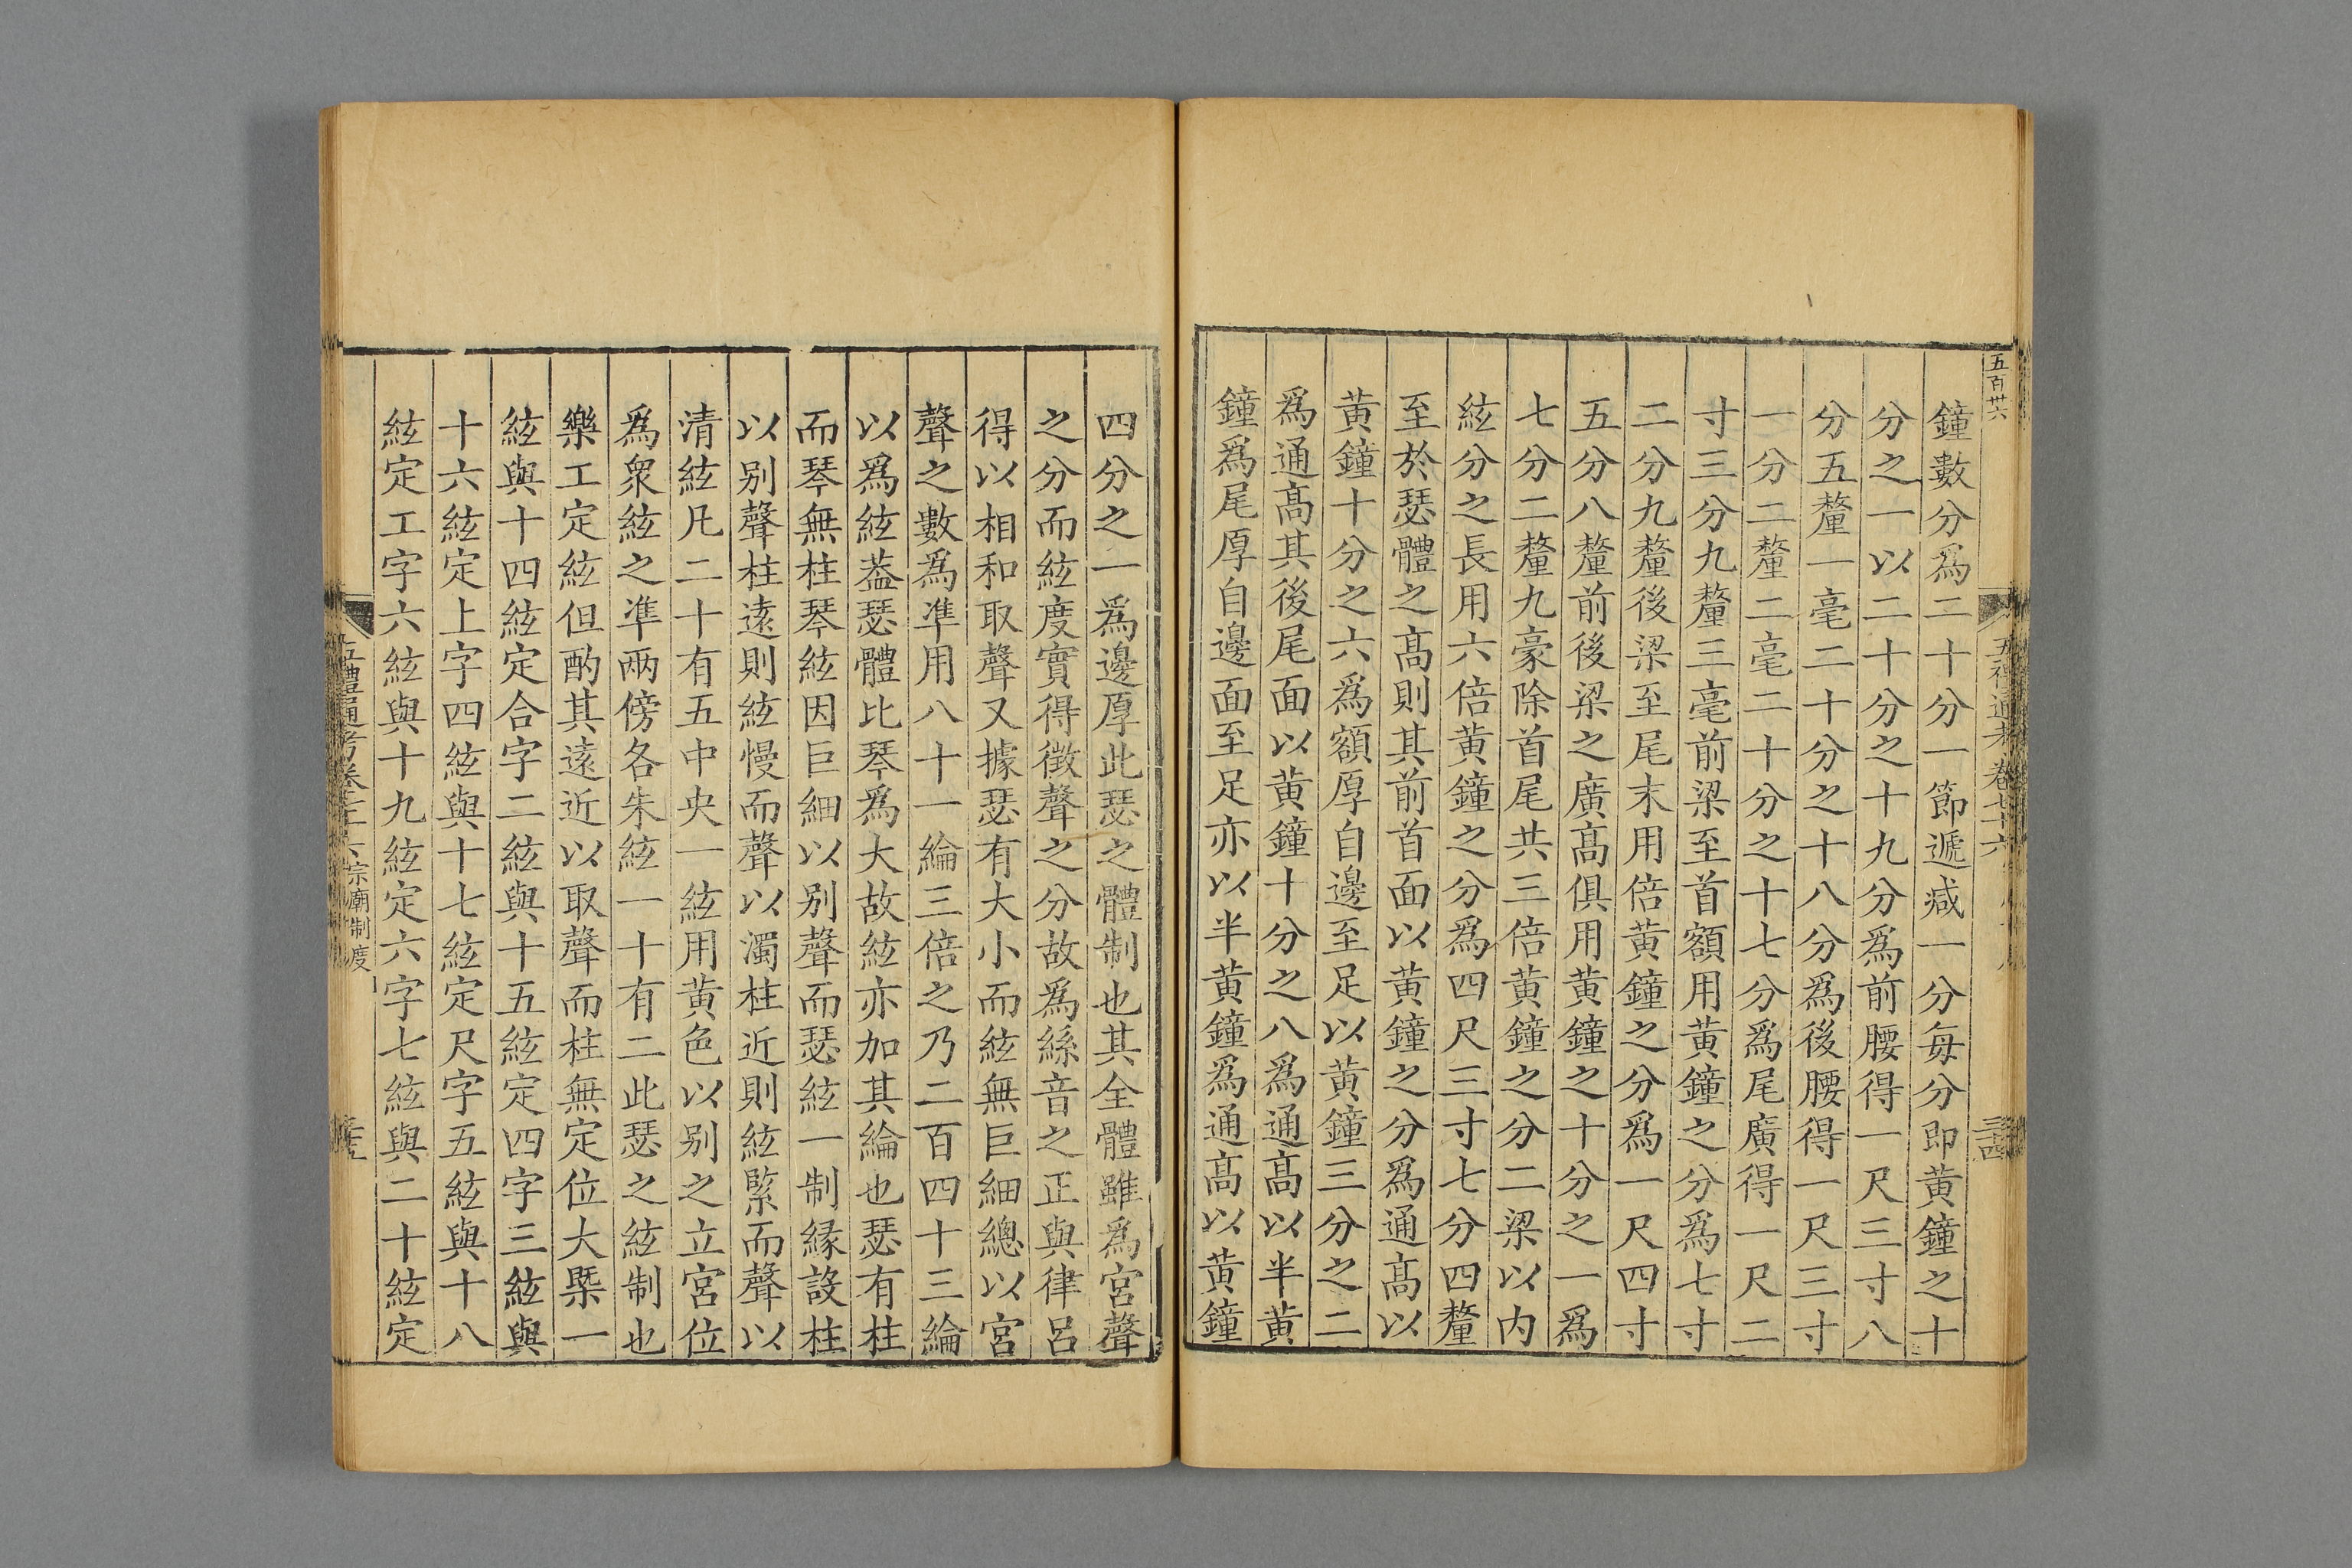 五百卅六
五禮通考卷七十六
三四
鐘數分爲二十分一節遞减一分毎分即黄鐘之十
分之一以二十分之十九分爲前腰得一尺三寸八
分五釐一毫二十分之十八分爲後腰得一尺三寸
一分二釐二毫二十分之十七分爲尾廣得一尺二
寸三分九釐三毫前梁至首額用黄鐘之分爲七寸
二分九釐後梁至尾末用倍黄鐘之分爲一尺四寸
五分八釐前後梁之廣高俱用黄鐘之十分之一爲
七分二釐九豪除首尾共三倍黄鐘之分二梁以内
絃分之長用六倍黄鐘之分爲四尺三寸七分四釐
至於瑟體之髙則其前首面以黄鐘之分爲通髙以
黄鐘十分之六爲額厚自邊至足以黄鐘三分之二
爲通髙其後尾面以黄鐘十分之八爲通髙以半黄
鐘爲尾厚自邊面至足亦以半黄鐘爲通髙以黄鐘
四分之一爲邊厚此瑟之體制也其全體雖爲宮聲
之分而絃度實得徴聲之分故爲絲音之正與律呂
得以相和取聲又據瑟有大小而絃無巨細總以宮
聲之數爲準用八十一綸三倍之乃二百四十三綸
以爲絃葢瑟體比琴爲大故絃亦加其綸也瑟有柱
而琴無柱琴絃因巨細以别聲而瑟絃一制縁設柱
以别聲柱遠則絃慢而聲以濁柱近則絃緊而聲以
清絃凡二十有五中央一絃用黄色以别之立宮位
爲衆絃之準兩傍各朱絃一十有二此瑟之絃制也
樂工定絃但酌其遠近以取聲而柱無定位大槩一
絃與十四絃定合字二絃與十五絃定四字三絃與
十六絃定上字四絃與十七絃定尺字五絃與十八
絃定工字六絃與十九絃定六字七絃與二十絃定
五禮通考卷七十六 宗廟制度